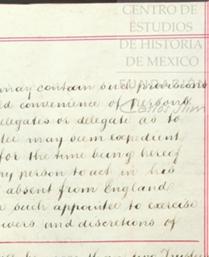 CENTRO DE
ESTUDIOS
DE HISTORIA
DE MEXICO
may contain such provisions
FUNDACIÓN
convenience of persons
delegates or delegate as to
may seem expedient
for the time being hereof
any person to act in his
absent from England
such appointee to exercise
powers and discretions of
two Trustees